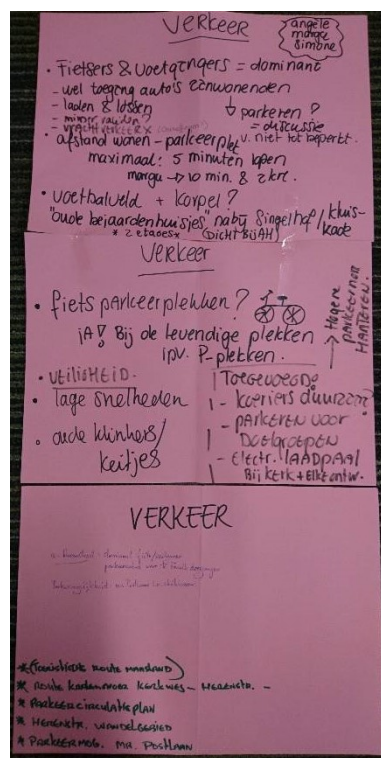 VERKEER
angèle
marga
simone
• Fietsers & voetgangers = dominant
- wel toegang auto's aanwonenden
- laden & lossen
↓ parkeren?
= discussie
v. niet tot beperkt.
• afstand wonen - parkeerplek
maximaal: 5 minuten lopen
marga → 10 min. & 2 krt.
• voetbalveld + korpel?
"oude bejaardenhuisjes" nabij Singelhof/kluis-
kade
* 2 etages * (DICHTBIJ AH)
Verkeer
• fiets parkeerplekken?
JA! Bij de levendige plekken
ipv. P-plekken.
→ Hogere
PARKEERNOR
• VEILIGHEID.
• lage snelheden
• oude klinkers/
keitjes
TOEGEVOEGD:
- koeriers duurzaam?
- PARKEREN VOOR
DOELGROEPEN
- Electr. LAADPAAL
Bij KERK + Elke ontw.
VERKEER
* (Toeristische Route MAASLAND)
* Route KERKWEG - HERENSTR. -
* PARKEERCIRCULATIEPLAN
* HERENSTR. WANDELGEBIED
* PARKEERMOG. MR. POSTLAAN